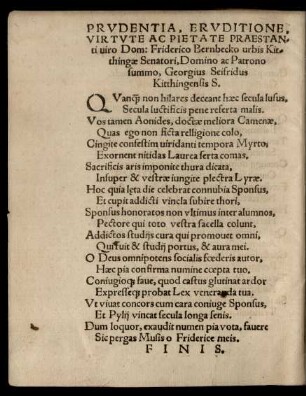 PRVDENTIA, ERVDITIONE,
VIRTVTE AC PIETATE PRAESTAN-
ti uiro Dom: Friderico Bernbecko urbis Kit-
thingæ Senatori, Domino ac Patrono
summo, Georgius Seifridus
Kitthingensis S.
QVancꝗ non hilares deceant hæc secula lusus,
Secula luctificis pene referta malis.
Vos tamen Aonides, doctæ meliora Camenæ,
Quas ego non ficta relligione colo,
Cingite confestim uiridanti tempora Myrto,
Exornent nitidas Laurea serta comas.
Sacrificis aris imponite thura dicata,
Insuper & vestræ iungite plectra Lyræ.
Hoc quia lęta die celebrat connubia Sponsus,
Et cupit addicti vincla subire thori,
Sponsus honoratos non vltimus inter alumnos,
Pectore qui toto vestra facella colunt,
Addictos studijs cura qui promouet omni,
Qui fuit & studij portus, & aura mei.
O Deus omnipotens socialis fœderis autor,
Hæc pia confirma numine cœpta tuo,
Coniugiocꝗ faue, quod castus glutinat ardor
Expressecꝗ probat Lex veneranda tua,
Vt viuat concors cum cara coniuge Sponsus,
Et Pylij vincat secula longa senis.
Dum loquor, exaudit numen pia vota, fauere
Sic pergas Musis o Friderice meis.
FINIS.